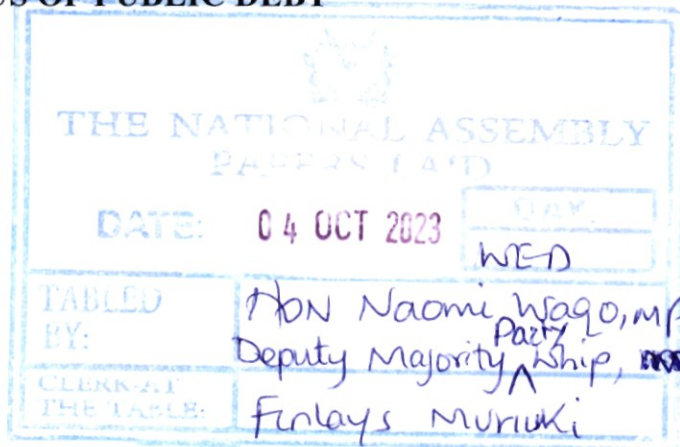 OF PUBLIC DEBT
THE NATIONAL ASSEMBLY
PAPERS LAID
DATE: 04 OCT 2023
DAY:
WED
TABLED BY: Hon Naomi Waqo, MP
Deputy Majority Party Whip,
CLERK-AT THE TABLE: Finlays Muriuki